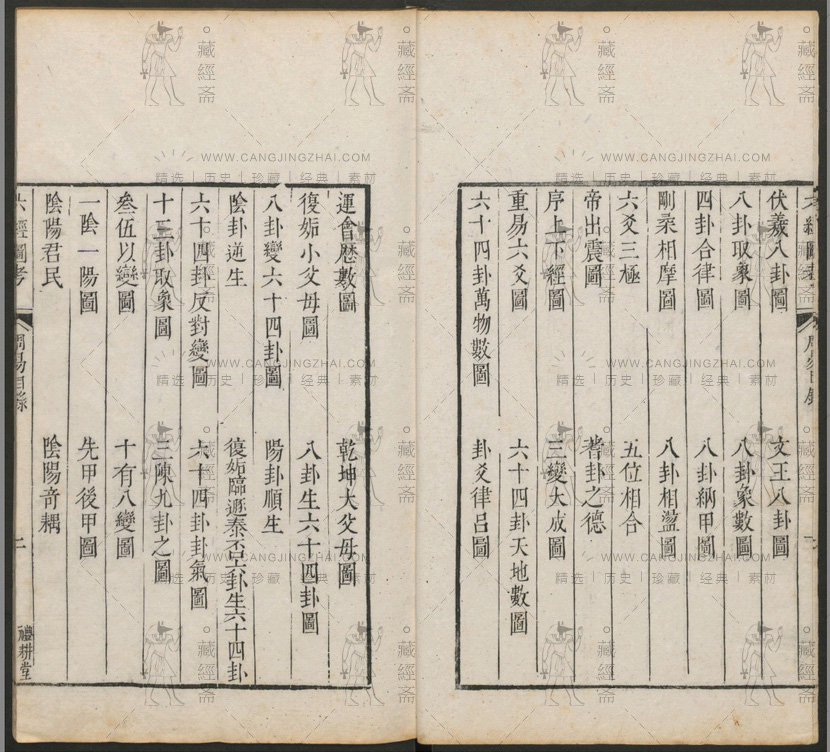 伏羲八卦圖　文王八卦圖
八卦取象圖　八卦象數圖
四卦合律圖　八卦納甲圖
剛柔相摩圖　八卦相盪圖
六爻三極　五位相合
帝出震圖　蓍卦之德
序上下經圖　三變大成圖
重易六爻圖　六十四卦天地數圖
六十四卦萬物數圖　卦爻律呂圖
運會歷數圖　乾坤大父母圖
復姤小父母圖　八卦生六十四卦圖
八卦變六十四卦圖　陽卦順生
陰卦逆生　復姤臨遯泰否六卦生六十四卦
六十四卦反對變圖　六十四卦卦氣圖
十三卦取象圖　三陳九卦之圖
叄伍以變圖　十有八變圖
一陰一陽圖　先甲後甲圖
陰陽君民　陰陽奇耦
六經圖考　周易目錄　二　禮耕堂
藏經斋
WWW.CANGJINGZHAI.COM
精选 | 历史 | 珍藏 | 经典 | 素材